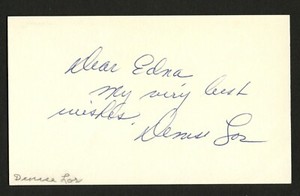 Dear Edna
My very best
wishes.
Denise Lor
Denise Lor